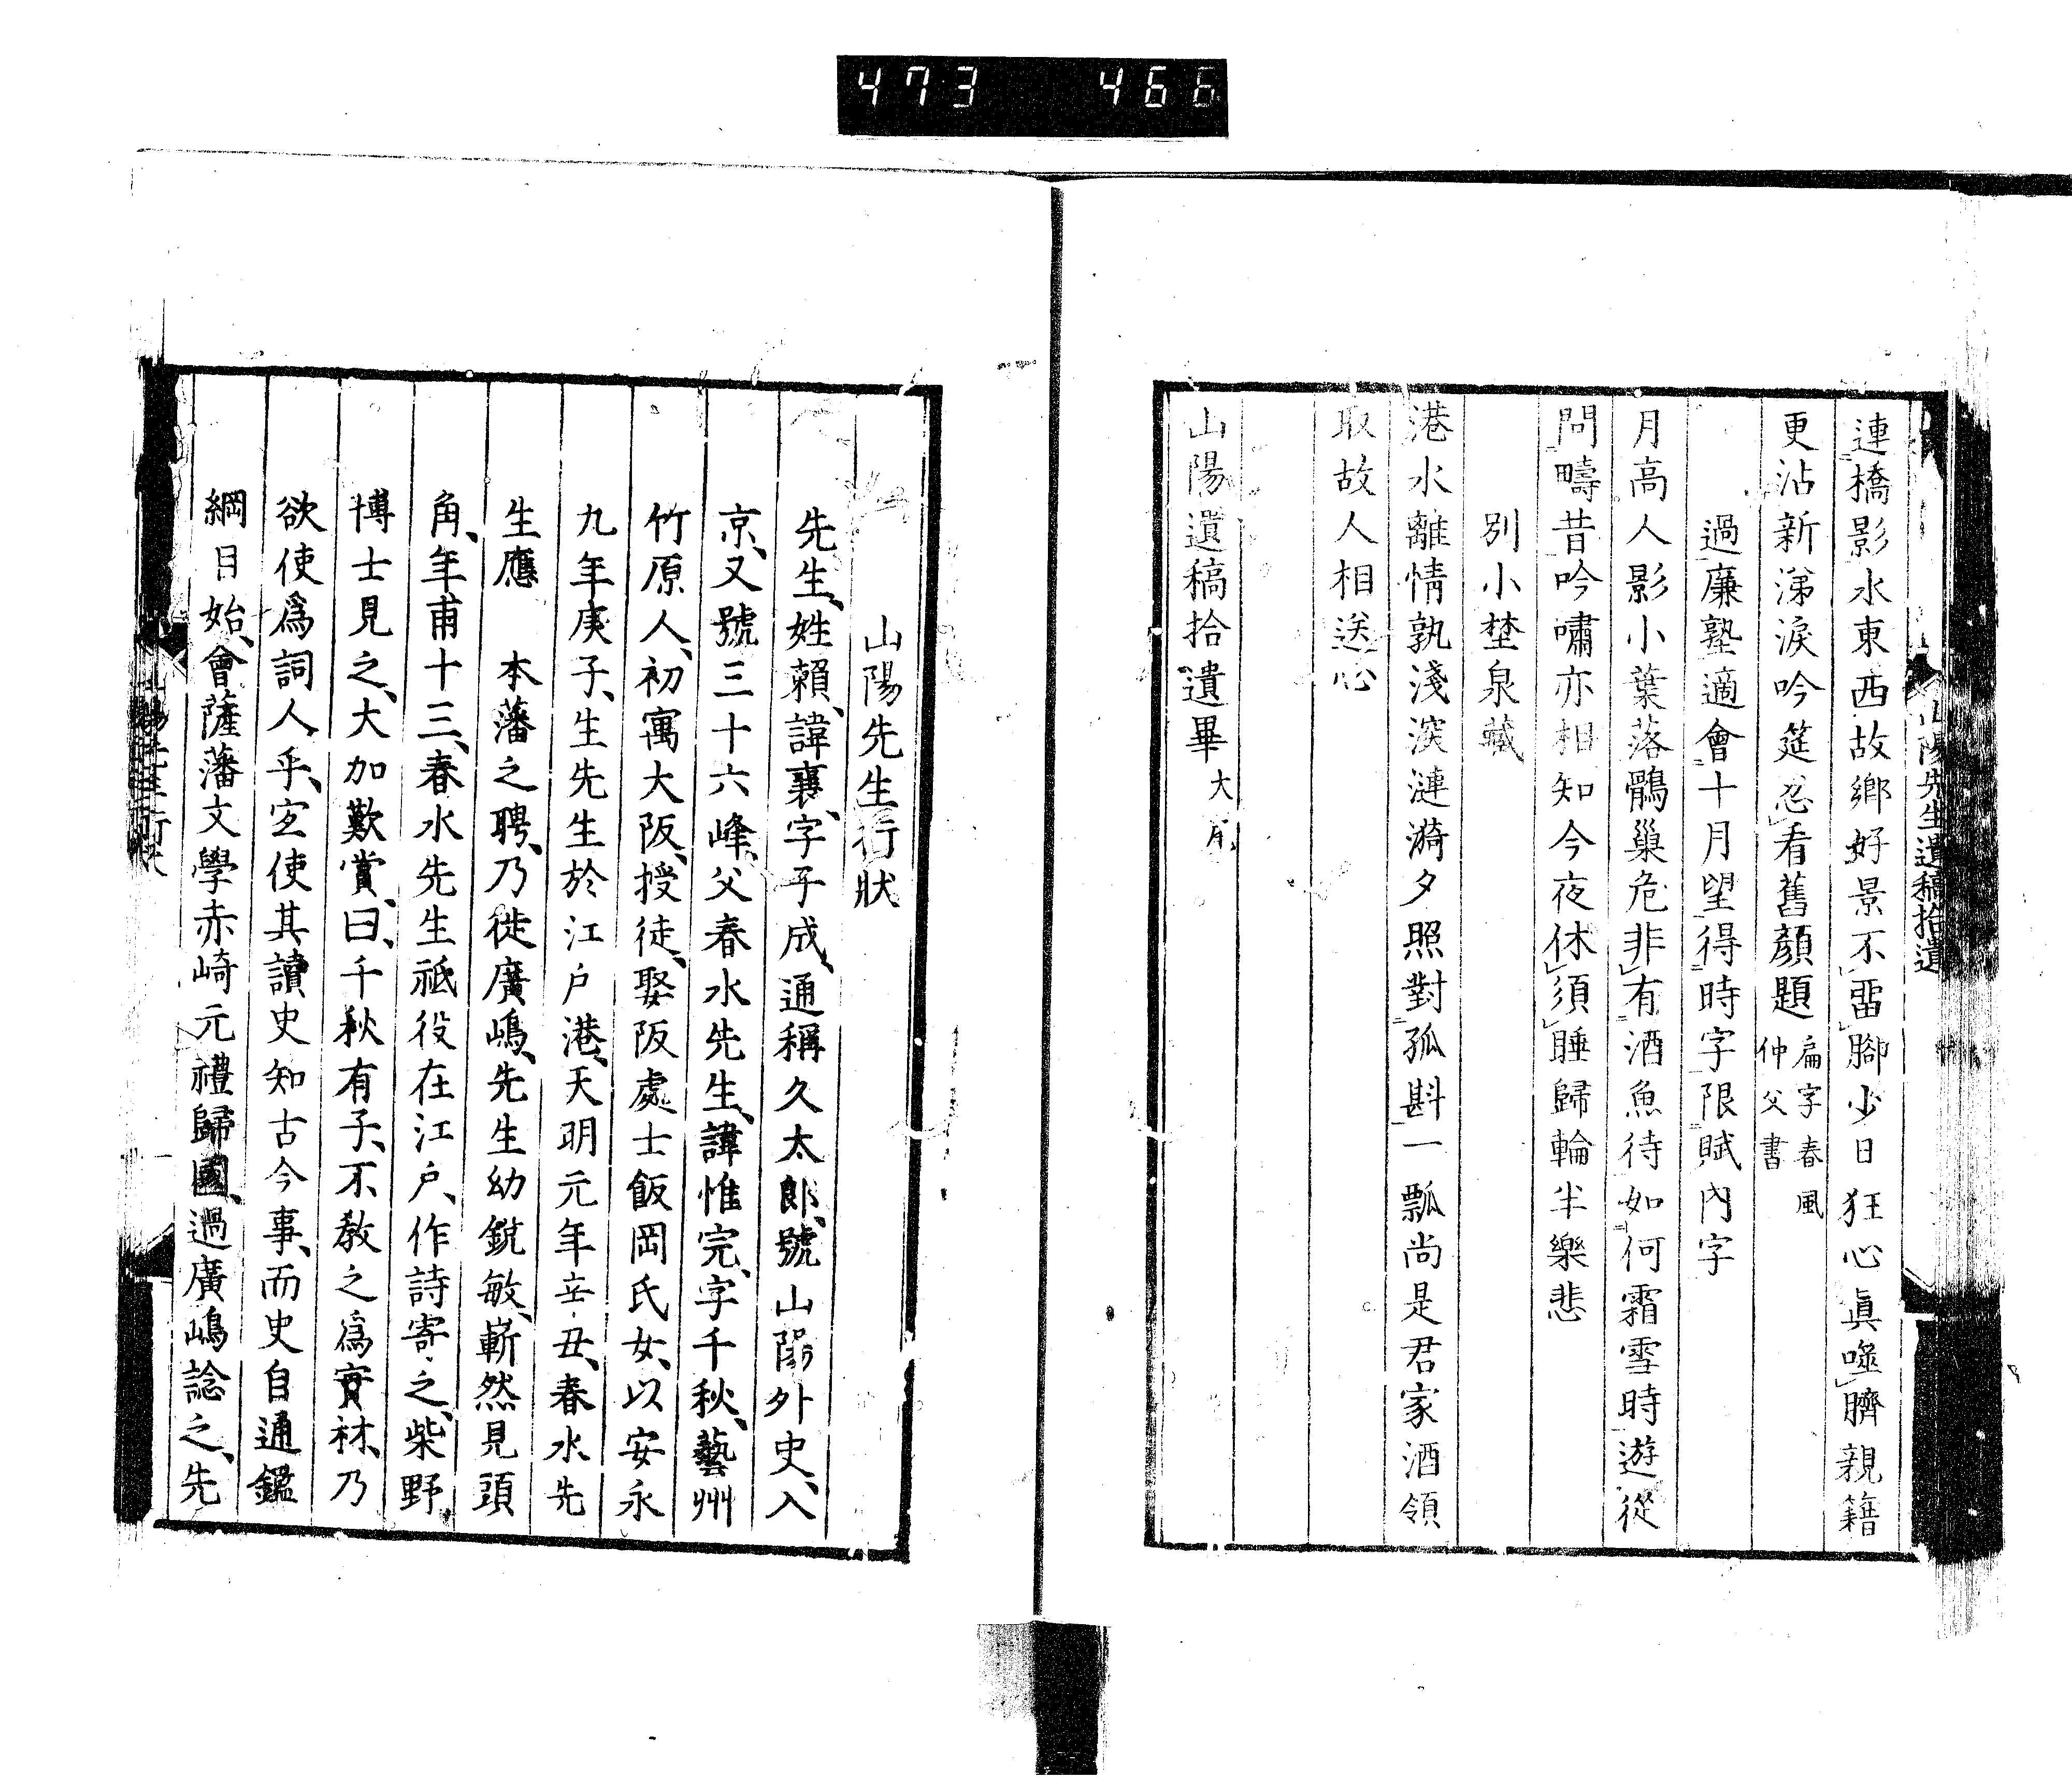 473 466
山陽先生遺稿拾遺
連橋影水東西故鄉好景不留腳少日狂心眞噬臍親籍
更沾新涕淚吟筵忍看舊顏題 扁字春風
仲父書
過廉塾適會十月望得時字限賦內字
月高人影小葉落鶻巢危非有酒魚待如何霜雪時遊從
問疇昔吟嘯亦相知今夜休須睡歸輪半樂悲
別小埜泉藏
港水離情孰淺深漣漪夕照對孤斟一瓢尚是君家酒領
取故人相送心
山陽遺稿拾遺畢 大尾
山陽先生行狀
先生、姓賴、諱襄、字子成、通稱久太郎、號山陽外史、入
京、又號三十六峰、父春水先生、諱惟完、字千秋、藝州
竹原人、初寓大阪、授徒、娶阪處士飯岡氏女、以安永
九年庚子、生先生於江戶港、天明元年辛丑、春水先
生應 本藩之聘、乃徙廣嶋、先生幼銳敏、嶄然見頭
角、年甫十三、春水先生祗役在江戶、作詩寄之、柴野
博士見之、大加歎賞、曰、千秋有子、不教之爲實材、乃
欲使爲詞人乎、宜使其讀史知古今事、而史自通鑑
綱目始、會薩藩文學赤崎元禮歸國、過廣嶋諗之、先
山陽先生行狀